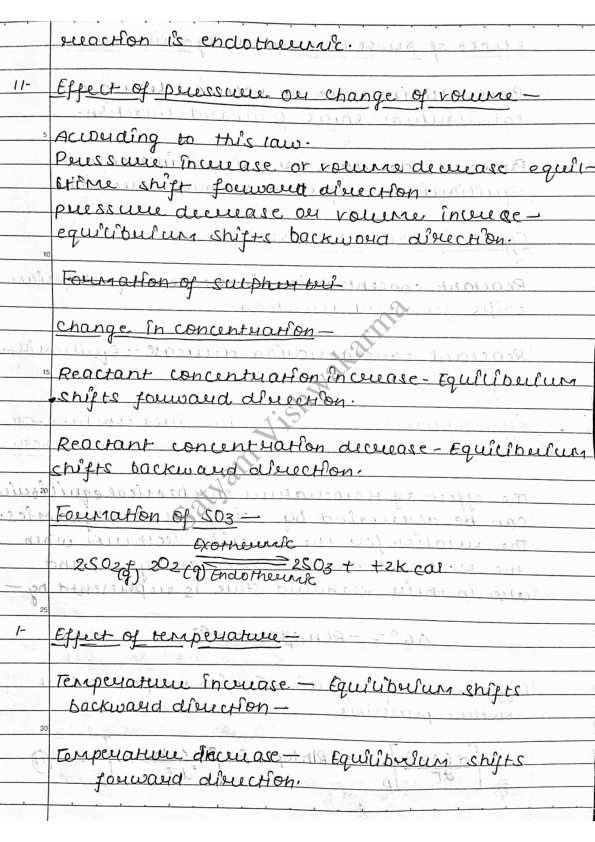 reaction is endothermic.
11- Effect of pressure or change of volume -
5 According to this law.
Pressure increase or volume decrease equil-
itime shift forward direction.
pressure decrease or volume increse -
equilibrium shifts backword direction.
10
Formation of sulpher tri
change in concentration -
15 Reactant concentration increase - Equilibrium
shifts forward direction.
Reactant concentration decrease - Equilibrium
shifts backward direction.
20
Formation of SO3 -
Exothermic
2SO2 + 2O2 (g) 2SO3 + +2K cal.
(g) Endothermic
25
1- Effect of temperature -
Temperature increase - Equilibrium shifts
backward direction -
30
Temperature decrease - Equilibrium shifts
forward direction.
Satyam Vishwakarma